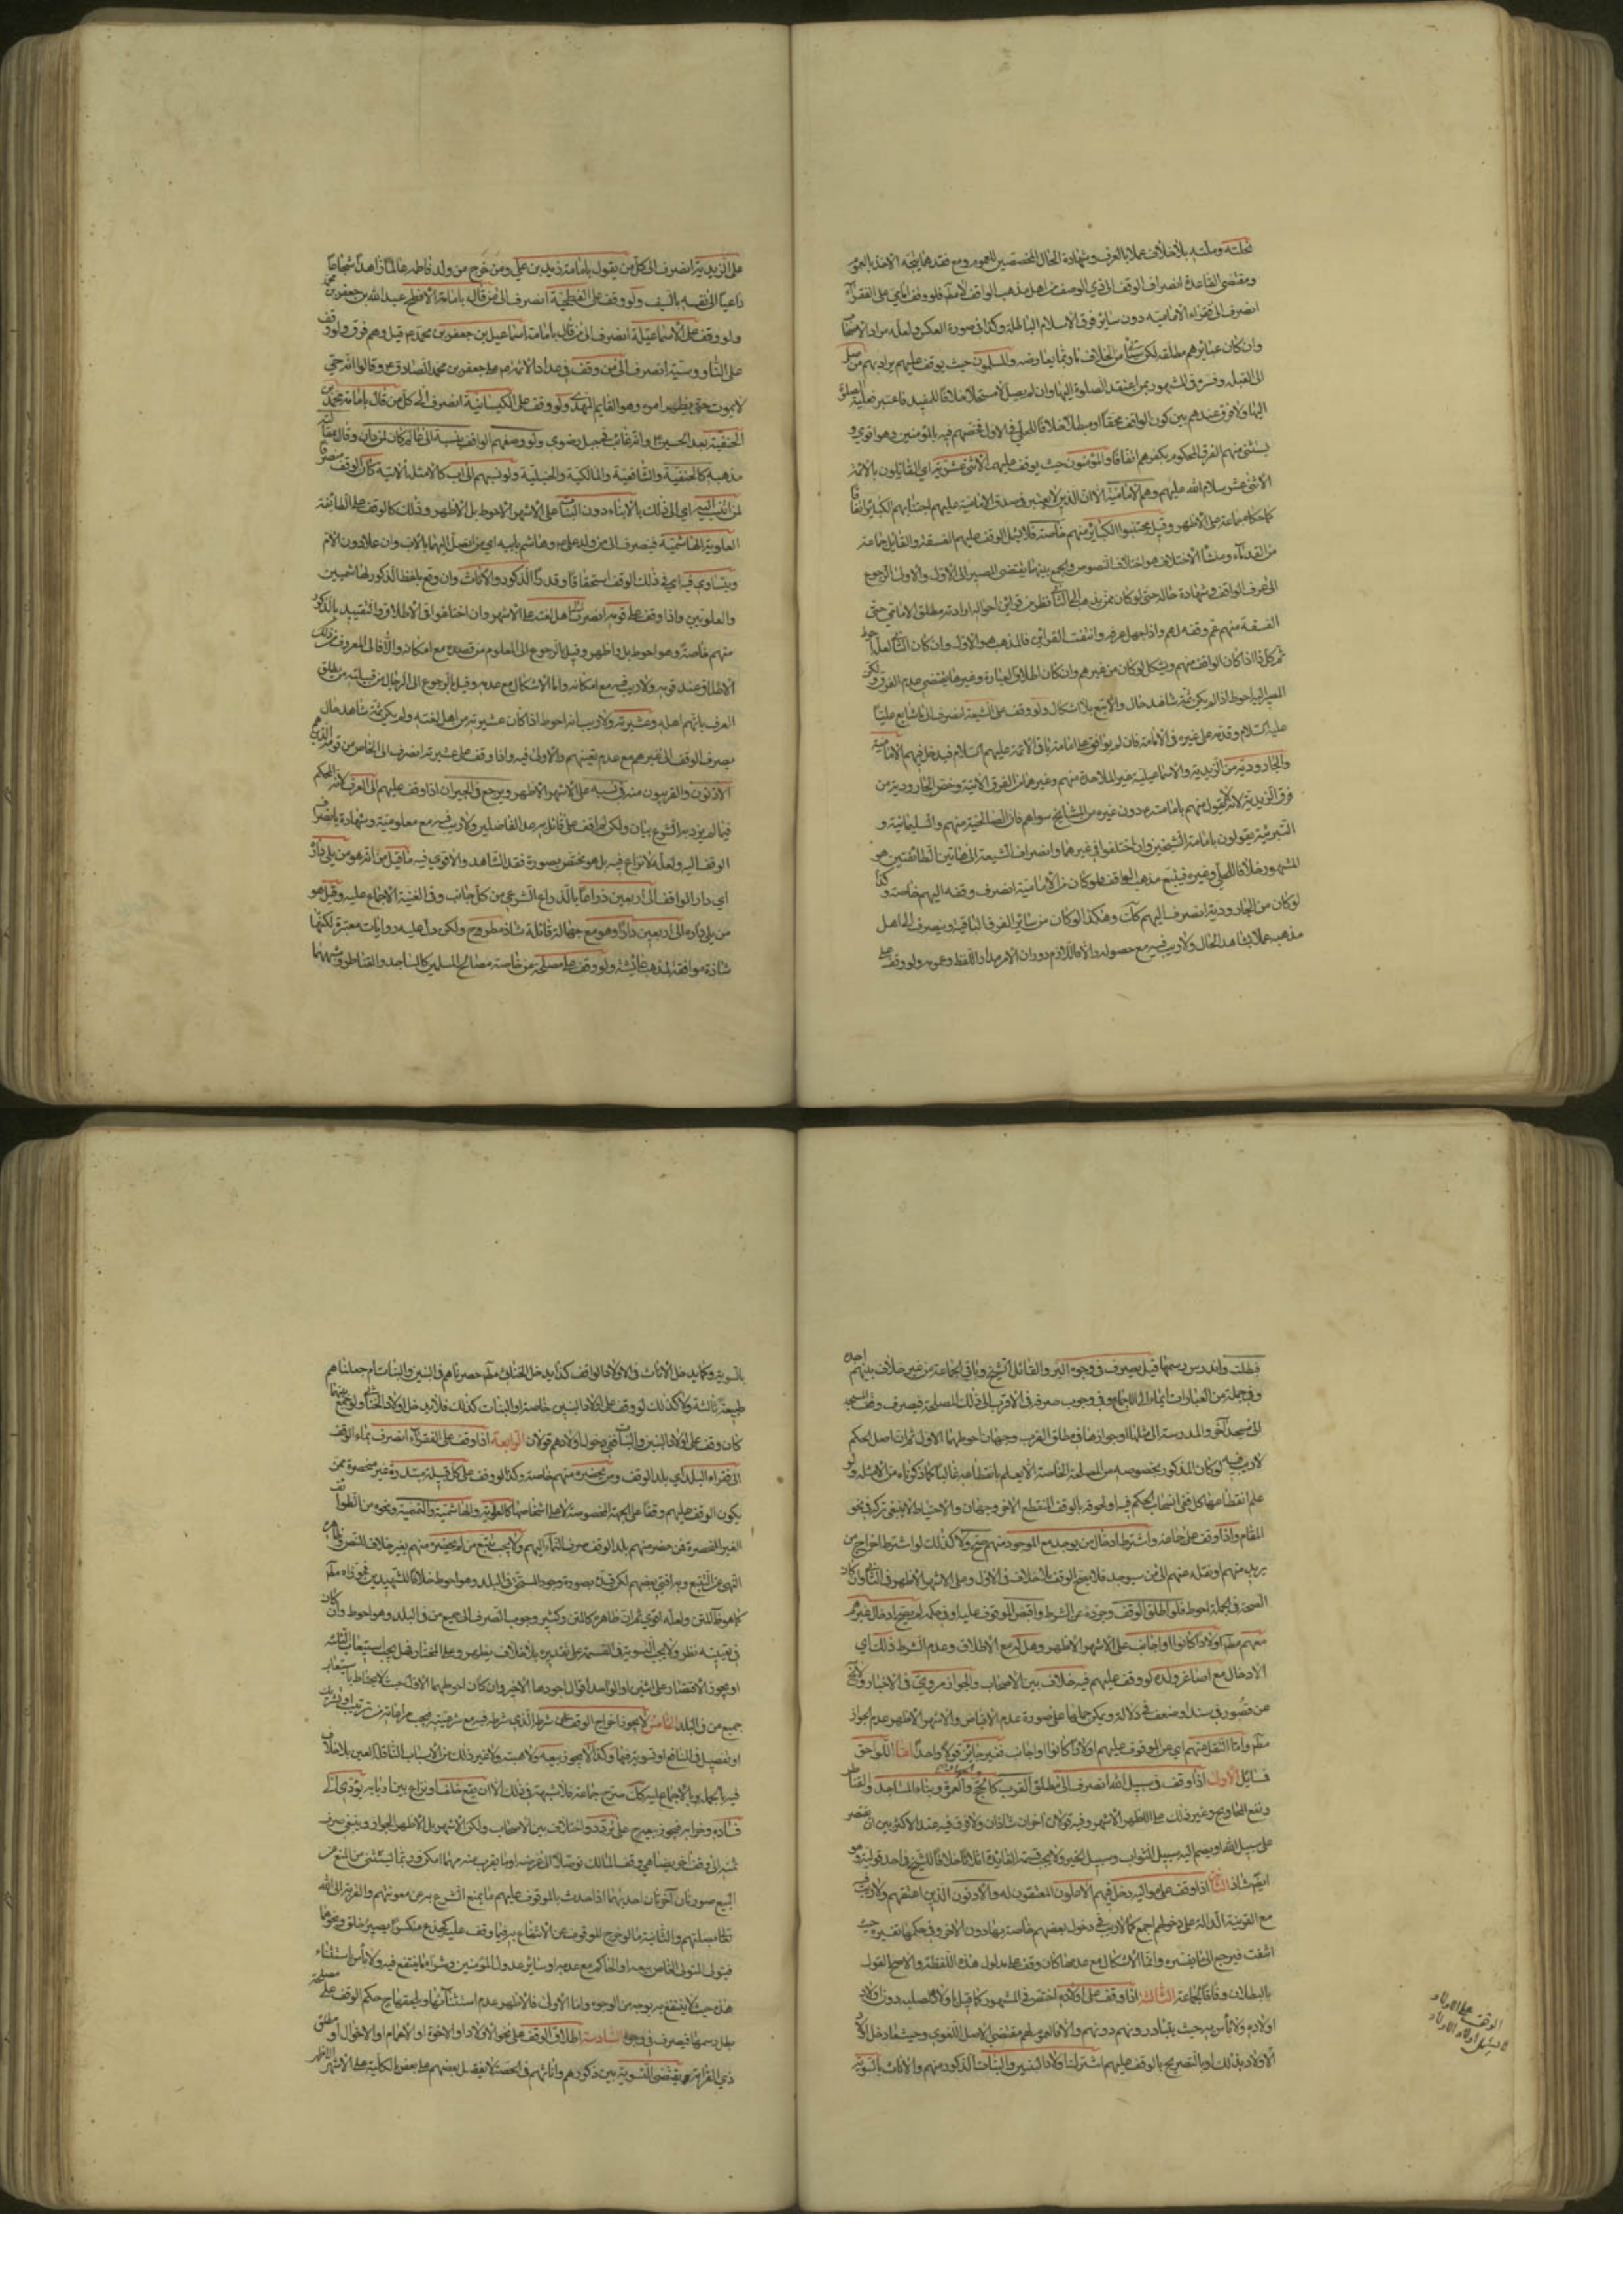 نحلته وملته بلا خلاف عملا بالعرف وشهادة الحال المخصصين للعموم ومع فقدهما يتجه الاخذ بالعموم
ومقتضى القاعدة انصراف الوقف الى ذي الوصف من اهل مذهب الواقف لا مطلقا فلو وقف الامامي على الفقراء
انصرف الى فقراء الامامية دون سائر فرق الاسلام الباطلة وكذا في صورة العكس ولعله مراد الاصحاب
وان كان عبائرهم مطلقة لكن من الخلاف وربما يعارضه والمسلمون حيث يوقف عليهم يراد بهم من صلى
الى القبلة وفسره في المشهور بمن اعتقد الصلوة اليها وان لم يصل لا مستحلا خلافا للمفيد فاعتبر فعلية الصلوة
اليها ولا فرق عندهم بين كون الواقف محقا او مبطلا خلافا للحلي في الاول فخصهم فيه بالمؤمنين وهو قوي و
يستثنى منهم الفرق المحكوم بكفرهم اتفاقا والمؤمنون حيث يوقف عليهم الاثنى عشرية اي القائلون بالائمة
الاثنى عشر سلام الله عليهم وهم الامامية الا ان الذين لا يعتبر في صدق الامامية عليهم اجتنابهم الكبائر اتفاقا
كما حكاه جماعة على الاظهر وقيل مجتنبوا الكبائر منهم خاصة فلا يشمل الوقف عليهم الفسقة والقائل جماعة
من القدماء ومنشأ الاختلاف هو اختلاف النصوص والجمع بينها يقتضى المصير الى الاول والاولى الرجوع
الى عرف الواقف وشهادة حاله حتى لو كان ممن يذهب الى الثاني فظهر من قرائن احواله ارادته مطلق الامامي حتى
الفسقة منهم عم وقفه لهم واذا جهل عرفه وانتفت القرائن فالمذهب هو الاول وان كان الثاني لعله احوط
ثم كل ذا اذا كان الواقف منهم ويشكل لو كان من غيرهم وان كان اطلاق العبارة وغيرها يقتضى عدم الفرق ولكن
المصير اليه احوط اذا لم يكن ثمة شاهد حال والا يتبع بلا اشكال ولو وقف على الشيعة انصرف الى من شايع عليا
عليه السلام وقدمه على غيره في الامامة وان لم يوافق على امامة باقي الائمة عليهم السلام فيدخل فيهم الامامية
والجارودية من الزيدية والاسماعيلية غير الملاحدة منهم وغير هما من الفرق الاتية وخص الجارودية من
فرق الزيدية لانه لا يقول منهم بامامته دون غيره من المشايخ سواهم فان الصالحية منهم والسليمانية و
البترية يقولون بامامة الشيخين وان اختلفوا في غيرهما وانصراف الشيعة الى هاتين الطائفتين هو
المشهور خلافا للحلي وغيره فيتبع مذهب الواقف فلو كان من الامامية انصرف وقفه اليهم خاصة وكذا
لو كان من الجارودية انصرف اليهم كك وهكذا لو كان من سائر الفرق الباقية وينصرف الى اهل
مذهبه عملا بشاهد الحال ولا ريب فيه مع حصوله والا فاللازم دوران الامر مدار اللفظ وعمومه ولو وقف على
على الزيدية انصرف الى كل من يقول بامامة زيد بن علي ومن خرج من ولد فاطمة عالما زاهدا شجاعا
داعيا الى نفسه بالسيف ولو وقف على الفطحية انصرف الى من قال بامامة الافطح عبد الله بن جعفر بن محمد
ولو وقف على الاسماعيلة انصرف الى من قال بامامة اسماعيل بن جعفر بن محمد قيل وهم فرق ولو وقف
على الناووسية انصرف الى من وقف في عداد الائمة على جعفر بن محمد الصادق ع وقالوا انه حي
لا يموت حتى يظهر امره وهو القايم المهدي ولو وقف على الكيسانية انصرف الى كل من قال بامامة محمد بن
الحنفية بعد الحسين ع وانه غائب في جبل رضوى ولو وصفهم الواقف بنسبة الى عالم كان لمن دان وقال بمقالته
مذهبه كالحنفية والشافعية والمالكية والحنبلية ولو نسبهم الى اب كالامثلة الاتية كان الوقف مصرفا
لمن انتسب اليه اي الى ذلك بالابناء دون البنات على الاشهر الاحوط بل الاظهر وذلك كالوقف على الطائفة
العلوية والهاشمية فينصرف الى من ولده علي ع وهاشم بابيه اي من اتصل اليهما بالاب وان علا دون الام
ويتساوى فيه اي في ذلك الوقف استحقاقا وقدرا الذكور والاناث وان وقع بلفظ الذكور كالهاشميين
والعلويين واذا وقف على قومه انصرف الى اهل لغته على الاشهر وان اختلفوا في الاطلاق والتقييد بالذكور
منهم خاصة وهو احوط بل واظهر وقيل بالرجوع الى المعلوم من قصده مع امكانه والا فالى المعروف من ذلك
الاطلاق عند قومه ولا ريب فيه مع امكانه وانما الاشكال مع عدمه وقيل بالرجوع الى الرجال من قبيلته من يطلق
العرف بانهم اهله وعشيرته ولا ريب انه احوط اذا كان عشيرته من اهل لغته ولم يكن ثمة شاهد حال
يصرف الوقف الى غيرهم مع عدم تعينهم والاولى فيه واذا وقف على عشيرته انصرف الى الخاص من قومه الذين هم
الادنون والقريبون منه في نسبه على الاشهر الاظهر ويرجع في الجيران اذا وقف عليهم الى العرف لانه المحكم
فيما لم يرد به الشرع بيان ولكن لم اقف على قائل به عدا الفاضلين ولا ريب فيه مع معلوميته وشهادته بانصراف
الوقف اليه ولعله لا نزاع فيه بل هو مختص بصورة فقد الشاهد والاقوى فيه ما قيل من انه هو من يلي داره
اي دار الواقف الى اربعين ذراعا بالذراع الشرعي من كل جانب وفي الغنية الاجماع عليه وقيل هو
من يلي داره الى اربعين دارا وهو مع جهالة قائله شاذ مطروح ولكن دل عليه روايات معتبرة لكنها
شاذة موافقة لمذهب عائشة ولو وقف على مصلحة من خاصة مصالح المسلمين كالمساجد والقناطر وشبههما
فبطلت واندرس رسمها قيل يصرف في وجوه البر والقائل الشيخ وباقي الجماعة من غير خلاف بينهم اجده
وفي جملة من العبارات ايماء الى الاجماع وفي وجوب صرفه في الاقرب الى ذلك المصلحة فيصرف وقف المسجد
الى مسجد آخر والمدرسة الى مثلها او جوازها في مطلق القرب وجهان احوطهما الاول ثم ان اصل الحكم
لا ريب فيه لو كان المذكور بخصوصه من المصلحة الخاصة لا يعلم بانقطاعه غالبا كما ذكرناه من الامثلة ولو
علم انقطاعها كل ففي انسحاب الحكم فيه او لحوقه بالوقف المنقطع الآخر وجهان والاحتياط لا ينبغي تركه في نحو
المقام واذا وقف على خاصة واشترط ادخال من يوجد مع الموجود منهم صح ولا كذلك لو اشترط اخراج من
يريد منهم او نقله عنهم الى من سيوجد فلا يصح الوقف بلا خلاف في الاول وعلى الاشهر الاظهر في الثاني وان كان
الصحة في الجملة احوط فلو اطلق الوقف وجرده عن الشرط واقبض الموقوف عليه او في حكمه لم يصح ادخال غيرهم
معهم مطلقا اولادا كانوا او اجانب على الاشهر الاظهر وهل له مع الاطلاق وعدم الشرط ذلك اي
الادخال مع اصاغر ولده لو وقف عليهم فيه خلاف بين الاصحاب والجواز مروي في الاخبار ولا يخ
عن قصور في سنده وضعف في دلالة ويمكن حملها على صورة عدم الاقباض والاشهر الاظهر عدم الجواز
مطلقا واما النقل عنهم اي عن الموقوف عليهم اولادا كانوا او اجانب فغير جائز قولا واحدا اما اللواحق
فمسائل الاولى اذا وقف في سبيل الله انصرف الى مطلق القرب كالحج والعمرة وبناء المساجد والقناطر
ونفع المحاويج وغير ذلك على الاظهر الاشهر وفيه قولان اخوان شاذان ولا فرق فيه عند الاكثر بين ان يقتصر
على سبيل الله او يضم اليه سبيل الثواب وسبيل الخير ولا يجب قسمة الفائدة اثلاثا خلافا للشيخ في احد قوليه وهو
ايضا شاذ الثانية اذا وقف على مواليه دخل فيهم الاعلون المعتقون له والادنون الذين اعتقهم ولا ريب فيه
مع القرينة الدالة على دخولهم اجمع كما لا ريب في دخول بعضهم خاصة بها دون الآخر وفي حكمها تفسيره حيث
انتفت فيرجع الى تفسيره وانما الاشكال مع عدمها كان وقف على مدلول هذه اللفظة والاصح القول
بالبطلان وفاقا لجماعة الثالثة اذا وقف على اولاده اختص في المشهور كما قيل باولاد الصلب دون اولاد
اولادهم ولا بأس به حيث يتبادرونهم دونهم والا فالعموم مقتضى الاصل اللغوي وحيثما دخل الاولاد
الاولاد بذلك او بالتصريح بالوقف عليهم اشترك اولاد البنين والبنات الذكور منهم والاناث بالسوية
الوقف على الاولاد
لا يشمل اولاد الاولاد
بالسوية وكما يدخل الاناث في الاولاد الواقف كذا يدخل الخناثى مطلقا حصرناهم في البنين والبنات ام جعلناهم
طبيعة ثالثة ولا كذلك لو وقف على اولاد البنين خاصة او البنات كذلك فلا يدخل اولاد الخناثى ولو جمع بينهما
كان وقف على اولاد البنين والبنات ففي دخول اولادهم قولان الرابعة اذا وقف على الفقراء انصرف نماء الوقف
الى فقراء البلد اي بلد الوقف ومن يحضره منهم خاصة وكذا لو وقف على كل قبيلة متبددة غير منحصرة ممن
يكون الوقف عليهم وقفا على الجهة المخصوصة لا على اشخاصها كالعلوية والهاشمية والتميمية ونحوه من الطوائف
الغير المنحصرة فمن حضر منهم بلد الوقف صرف النماء اليهم ولا يجب تتبع من لم يحضره منهم بغير خلاف للنص وظاهره
النهي عن التتبع وبه افتى بعضهم لكن قيده بصورة وجود المستحق في البلد وهو احوط خلافا للشهيدين فجوزاه مطلقا
كما هو ظ المتن ولعله اقوى ثم ان ظاهره كالمتن وكثير وجوب الصرف الى جميع من في البلد وهو احوط وان كان
في تعيينه نظر ولا يجب التسوية في القسمة على تقديره بلا خلاف يظهر وعلى المختار فهل يجب استيعاب الثلثة
او يجوز الاقتصار على اثنين او الواحد اقوال اجودها الاخير وان كان احوطها الاول حيث لا يحتاط باستيعابه
جميع من في البلد الخامس لا يجوز اخراج الوقف عن شرطه الذي شرطه فيه مع شرعيته فيجب مراعاته من ترتيب او تشريك
او تفضيل في المنافع او تسوية فيها وكذا لا يجوز بيعه ولا هبته ولا غير ذلك من الاسباب الناقلة العين بلا خلاف
فيه بالجملة وبالاجماع عليه كك صرح جماعة فلا شبهة في ذلك الا ان يقع خلف ونزاع بين اربابه يؤدي الى
فساده وخرابه فيجوز بيعه ح على تردد واختلاف بين الاصحاب ولكن الاشهر بل الاظهر الجواز وينبغي صرف
ثمنه الى وقف آخر يضاهي وقف المالك توصلا الى غرضه او ما يقرب منه مهما امكن وربما يستثنى من المنع عن
البيع صورتان آخرتان احديهما اذا حدث بالموقوف عليهم ما يمنع الشرع بره عن معونتهم والقربة الى الله
تعالى بصلتهم والثانية ما لو خرج الموقوف عن الانتفاع به فيما وقف عليه كجذع منكسر او حصير خلق ونحوهما
فيتولى المتولى الخاص بيعه او الحاكم مع عدمه او سائر عدول المؤمنين وشراء ما ينتفع فيه ولا بأس باستثناء
هذه حيث لا ينتفع به بوجه من الوجوه واما الاولى فالاظهر عدم استثنائها ويلحقها ح حكم الوقف على مصلحة
بطل رسمها فيصرف في وجوه السادسة اطلاق الوقف على نحو الاولاد او الاخوة او الاعمام او الاخوال او مطلق
ذي القرابة يقتضى التسوية بين ذكورهم واناثهم في الحصة لا يفضل بعضهم على بعض بالكلية على الاشهر الاظهر